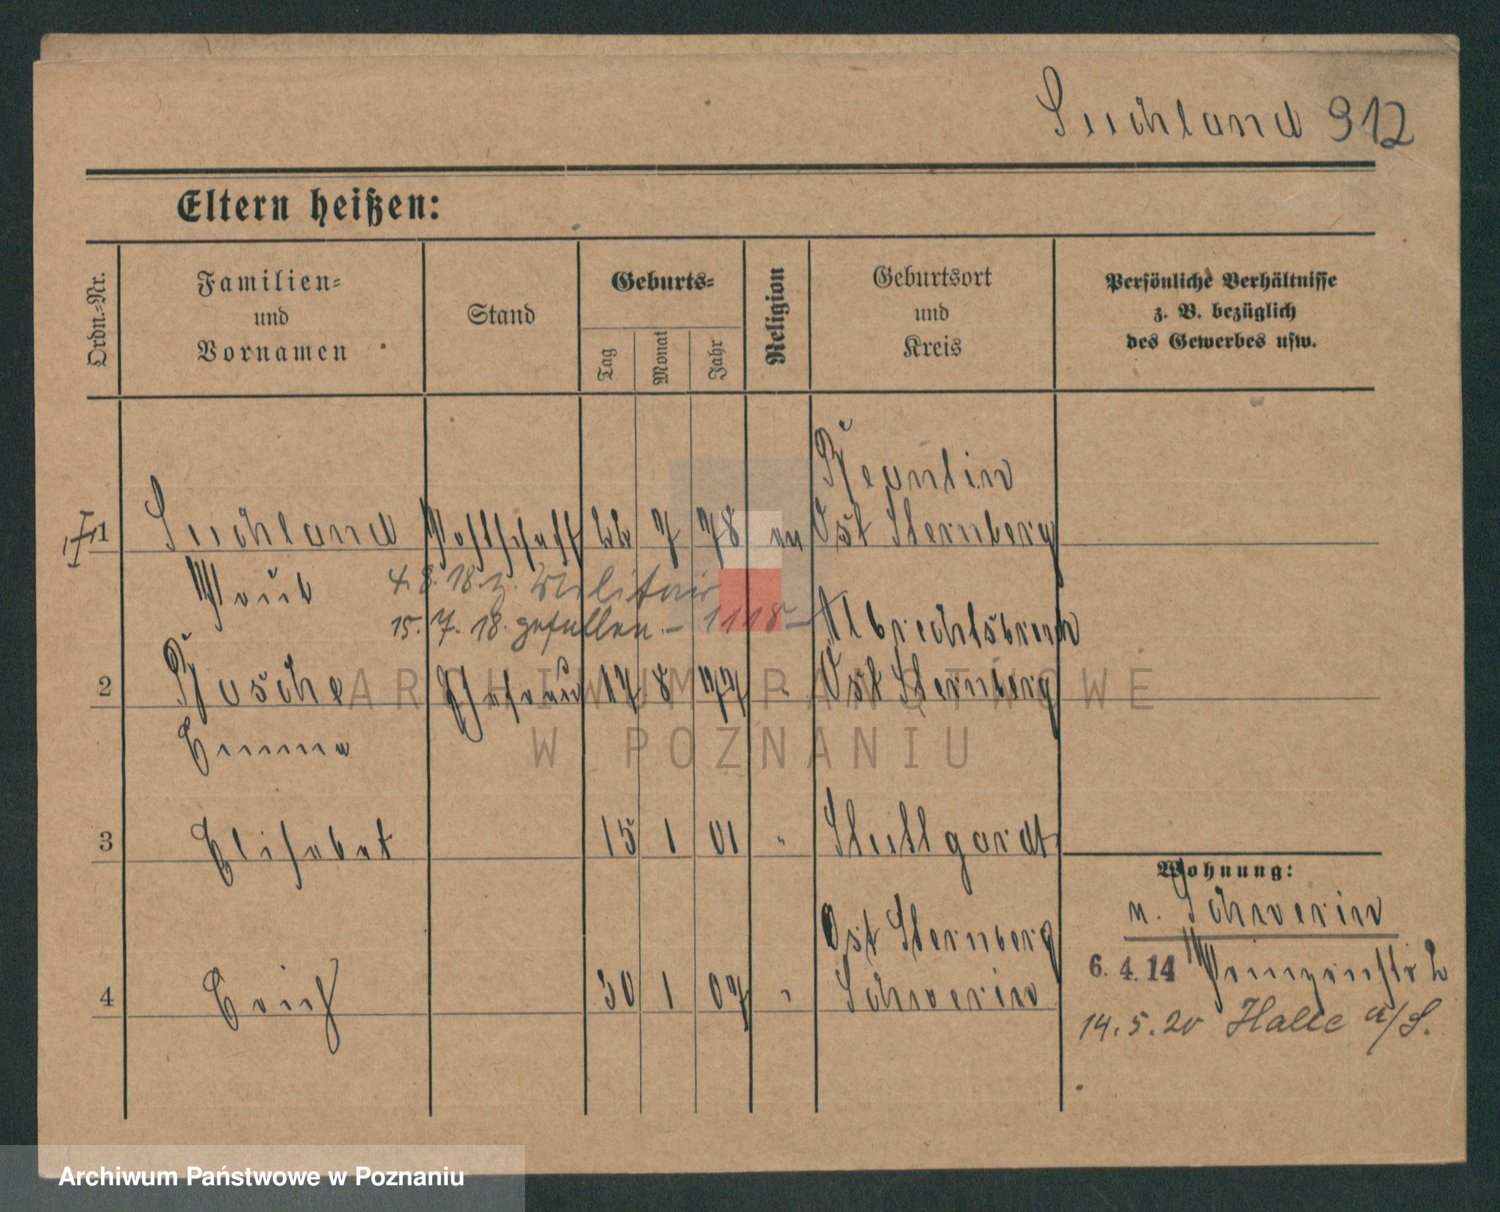 Suchland 912
Eltern heißen:
Ordn.-Nr.
Familien-
und
Vornamen
Stand
Geburts-
Tag
Monat
Jahr
Religion
Geburtsort
und
Kreis
Persönliche Verhältnisse
z. B. bezüglich
des Gewerbes usw.
1 Suchland 7 78 Ost Sternberg
4. 8. 18. z. Militair
15. 7. 18. gefallen. – 1118 –
Albrechtsbruch
2 Ehefrau 17 8 77 " Ost Sternberg
Emma
3 Elisabet 15 1 01 " Stuttgardt
Wohnung:
n. Schwerin
Ost Sternberg
4 Erich 30 1 07 " Schwerin
6. 4. 14
14. 5. 20 Halle a/S.
ARCHIWUM PAŃSTWOWE
W POZNANIU
Archiwum Państwowe w Poznaniu